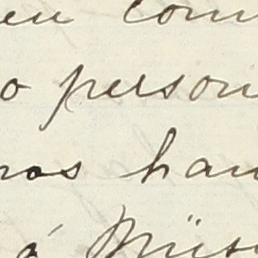 en com
o person
ros han
á Müs